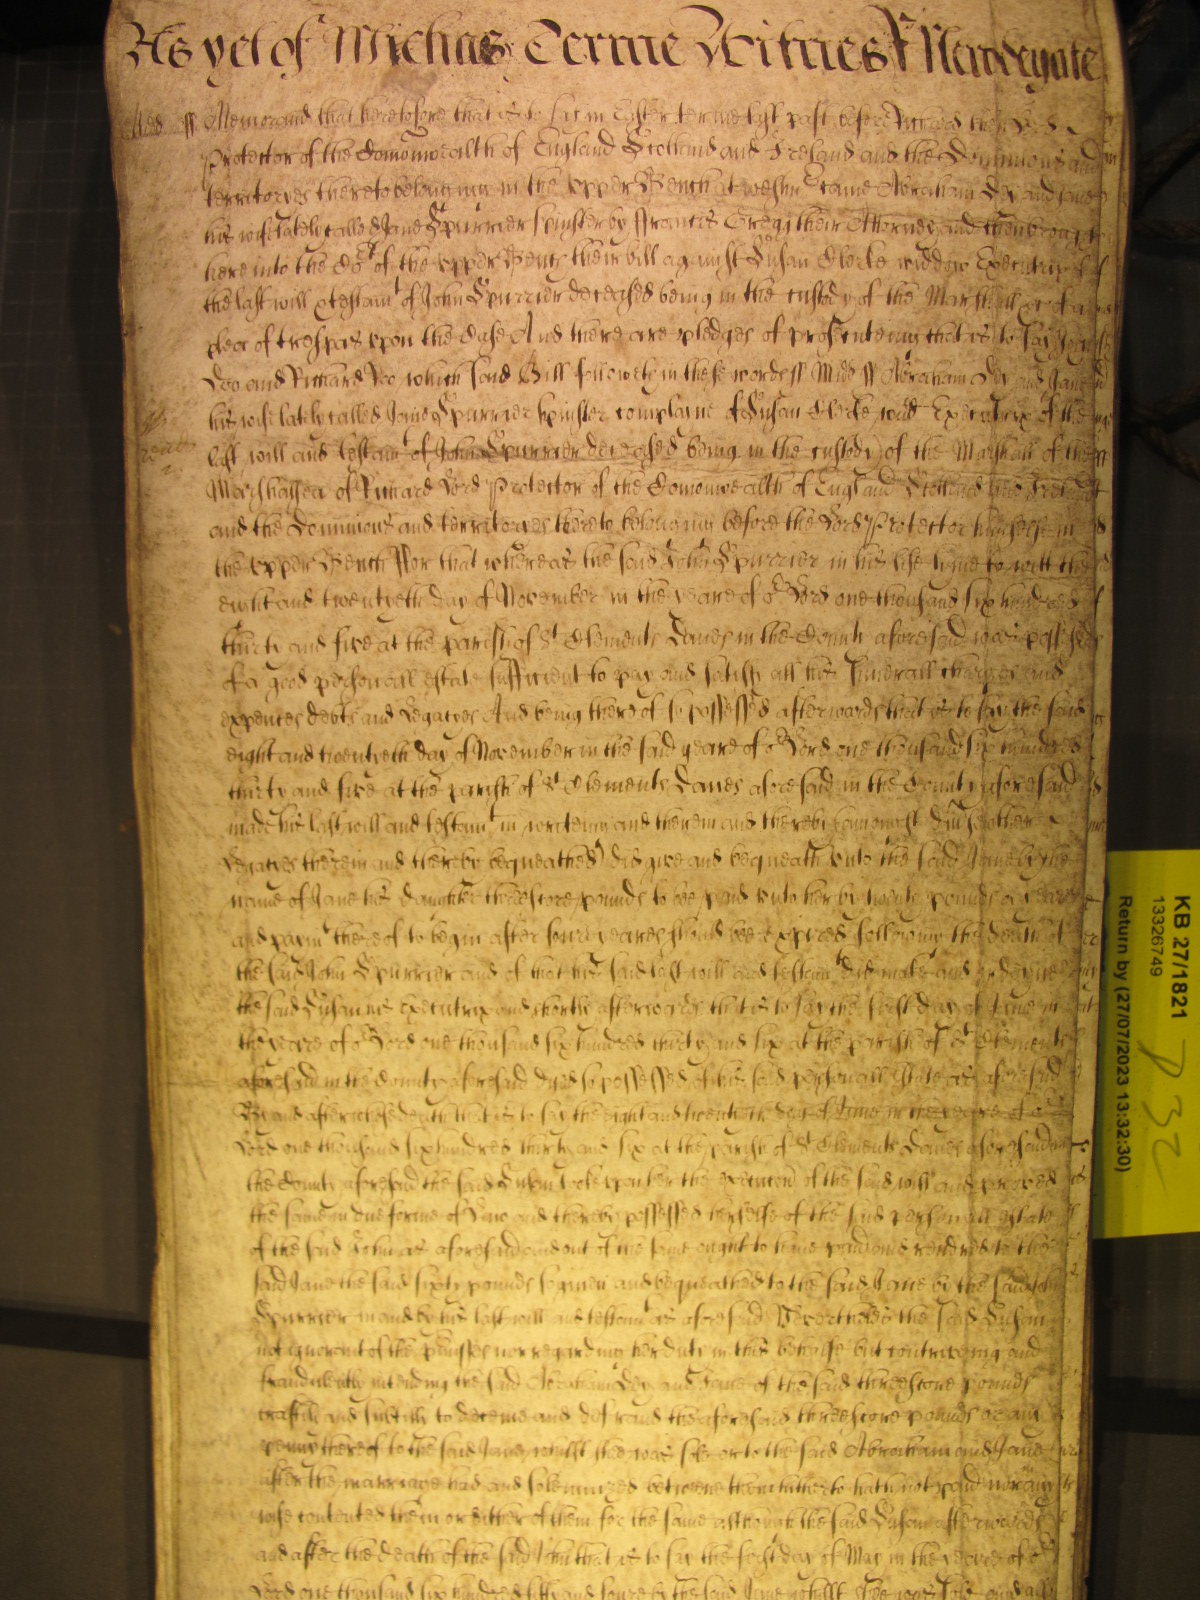 As yet of Michās Terme Witnes R Newdegate
Midd ss Memorand that heretofore that is to say in Easter terme last past before Richard then Lord
Protector of the Comonwealth of England Scotland and Ireland and the Dominions and
territoryes thereto belonging in the upper Bench at Westm came Abraham Day and Jane
his wife lately called Jane Spurrier spinster by Francis Gregg their Attorney and then brought
here into the Cot of the upper Bench their bill against Susan Clerke widdow Executrix of
the last will & testamt of John Spurrier deceased being in the custody of the Marshall &c of a
plea of trespas upon the Case And there are pledges of prosecuteing that is to say John
Doo and Richard Roo which said Bill followeth in these words ss Midd ss Abraham Day and Jane
his wife lately called Jane Spurrier spinster complaine of Susan Clerke widd Executrix of the
last will and testamt of John Spurrier deceased being in the custody of the Marshall of the
Marshalsea of Richard Lord Protector of the Comonwealth of England Scotland and Ireland
and the Dominions and territoryes thereto belonging before the Lord Protector himselfe in
the upper Bench For that whereas the said John Spurrier in his life tyme to witt the
eight and twentyeth day of November in the yeare of or Lord one thousand six hundred
thirty and five at the parish of St Clements Danes in the County aforesaid was possessed
of a good personall estate sufficient to pay and satisfy all his funerall charges and
expences debts and Legacyes And being thereof so possessed afterwards that is to say the said
eight and twentyeth day of November in the said yeare of or Lord one thousand six hundred
thirty and five at the parish of St Clements Danes aforesaid in the County aforesaid
made his last will and testamt in writeing and therein and thereby (amongst divs other
Legacyes therein and thereby bequeathed) did give and bequeath unto the said Jane by the
name of Jane his daughter threescore pounds to bee paid unto her by twenty pounds a yeare
and paymt thereof to begin after foure yeares should bee expired following the death of
the said John Spurrier and of that his said last will and testamt did make and ordayne
the said Susan his executrix and shortly afterwards that is to say the first day of June in
the yeare of or Lord one thousand six hundred thirty and six at the parish of St Clements
aforesaid in the County aforesaid dyed so possessed of his said personall Estate as aforesaid
By and after whose death that is to say the eight and twentieth day of June in the yeare of or
Lord one thousand six hundred thirty and six at the parish of St Clements Danes aforesaid in
the County aforesaid the said Susan tooke upon her the execucon of the said will and proved
the same in due forme of Law and thereby possessed herselfe of the said personall estate
of the said John as aforesaid and out of the same ought to have paid and rendred to the
said Jane the said sixty pounds so given and bequeathed to the said Jane by the said John
Spurrier in and by his last will and testamt as aforesaid Neverthelesse the said Susan
not ignorant of the premisses nor regarding her duty in this behalfe but contriveing and
fraudulently intending the said Abraham Day and Jane of the said threescore pounds
craftily and subtilly to deceive and defraud the aforesaid threescore pounds or any
penny thereof to the said Jane whilst shee was sole or to the said Abraham and Jane
after the marriage had and solemnized betweene them hitherto hath not paid nor any
wise contented them or either of them for the same although the said Susan afterwards
and after the death of the said John that is to say the first day of May in the yeare of or
Lord one thousand six hundred fifty and foure by the said Jane whilst shee was sole and
KB 27/1821
13326749
Return by (27/07/2023 13:32:30)
P 32